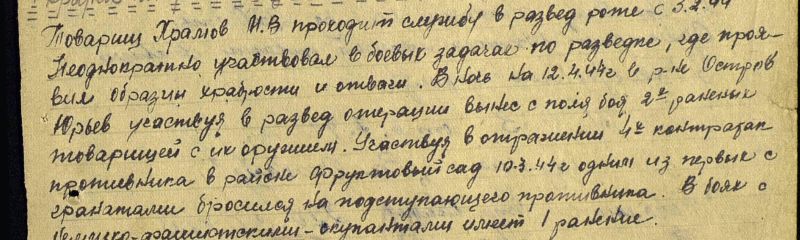 Товарищ Храмов И.В проходит службу в развед роте с 5.2.44
Неоднократно участвовал в боевых задачах по разведке, где проя-
вил образцы храбрости и отваги. В ночь на 12.4.44г в р-не Остров
Юрьев участвуя в развед операции вынес с поля боя 2х раненых
товарищей с их оружием. Участвуя в отражении 4х контратак
противника в районе Фруктовый сад 10.3.44г одним из первых с
гранатами бросился на подступающего противника. В боях с
немецко-фашистскими-окупантами имеет 1 ранение.